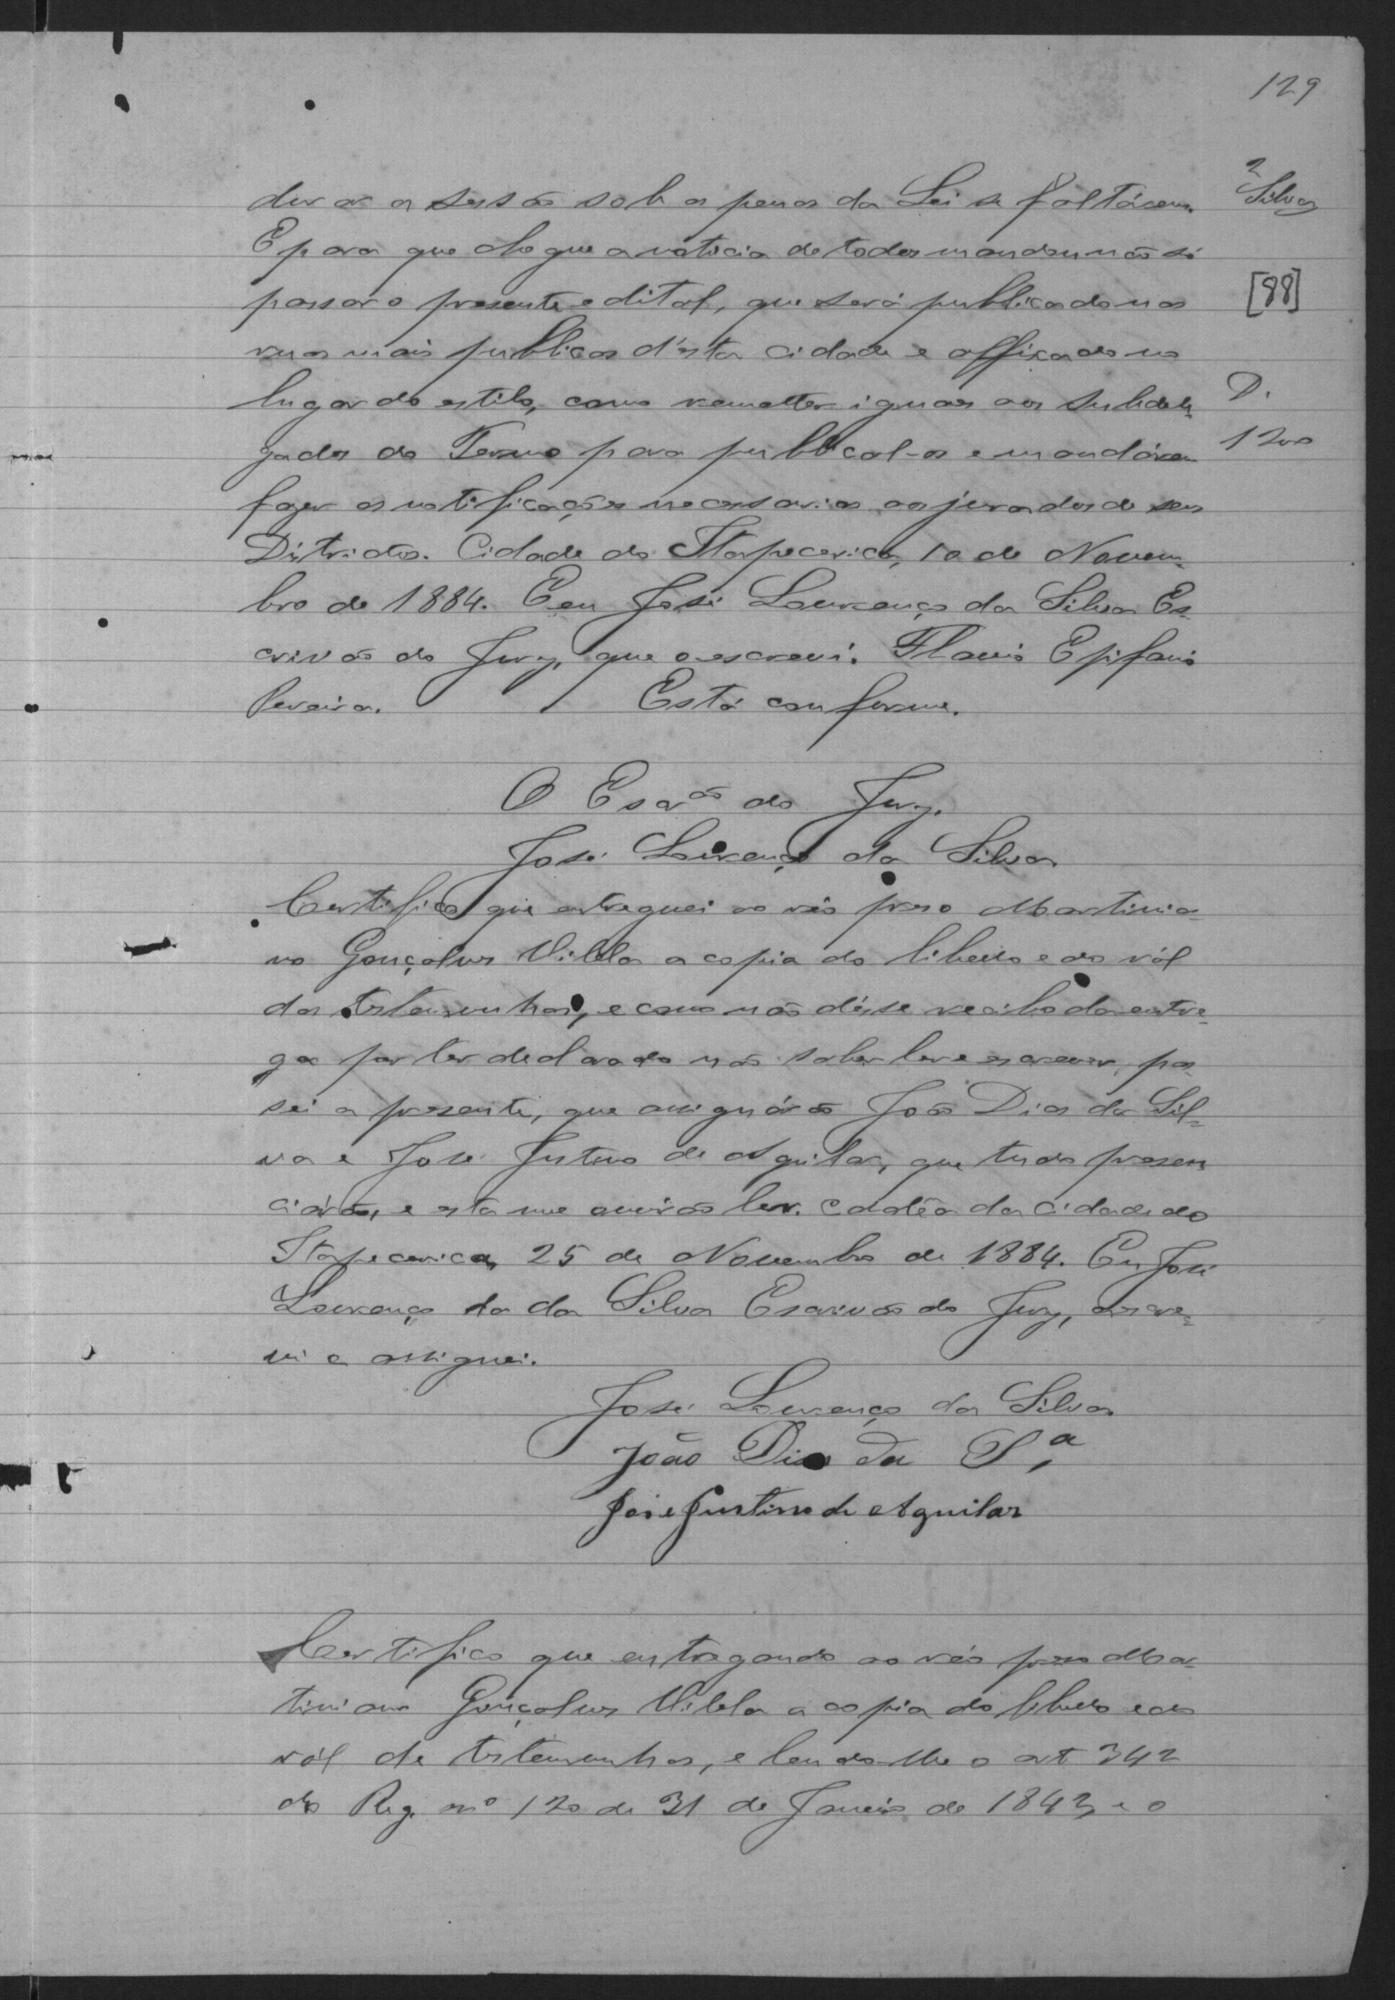 129
2
Silva
[88]
D.
1200
durar a sessão sob as penas da Lei se faltárem.
E para que chegue a noticia de todos mandou não só
passar o presente edital, que será publicado nas
ruas mais publicas d'esta cidade e affixado no
lugar do estilo, como remetter iguaes aos subdele-
gados do Termo para publical-os e mandárem
fazer as notificações necessarias aos jurados de seus
Districtos. Cidade do Itapecerica, 10 de Novem-
bro de 1884. E eu José Lourenço da Silva Es-
crivão do Jury, que o escrevi. Flavio Epifanio
Pereira. Está conforme.
O Escrᵃᵒ do Jury.
José Lourenço da Silva
Certifico que entreguei ao réo preso Martinia-
no Gonçalves Vilela a copia do libello e do ról
das testemunhas, e como não désse recibo da entre-
ga por ter declarado não saber ler e escrever, pas-
sei a presente, que assignárão João Dias da Sil-
va e José Justino de Aguilar, que tudo presen-
ciárão, e esta me ouvirão ler. Cadêa da Cidade do
Itapecerica, 25 de Novembro de 1884. Eu José
Lourenço da da Silva Escrivão do Jury, escre-
vi e assignei.
José Lourenço da Silva
João Dias da Sᵃ
José Justino de Aguilar
Certifico que entregando ao réo preso Mar-
tiniano Gonçalves Vilela a copia do libello e do
ról de testemunhas, e lendo-lhe o art 342
do Reg. nº 120 de 31 de Janeiro de 1842, e o